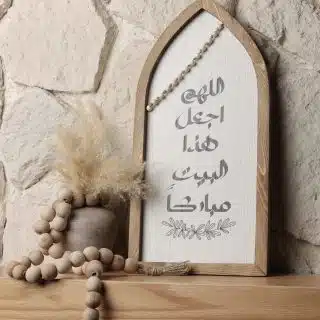 اللهم
اجعل
هذا
البيت
مباركاً